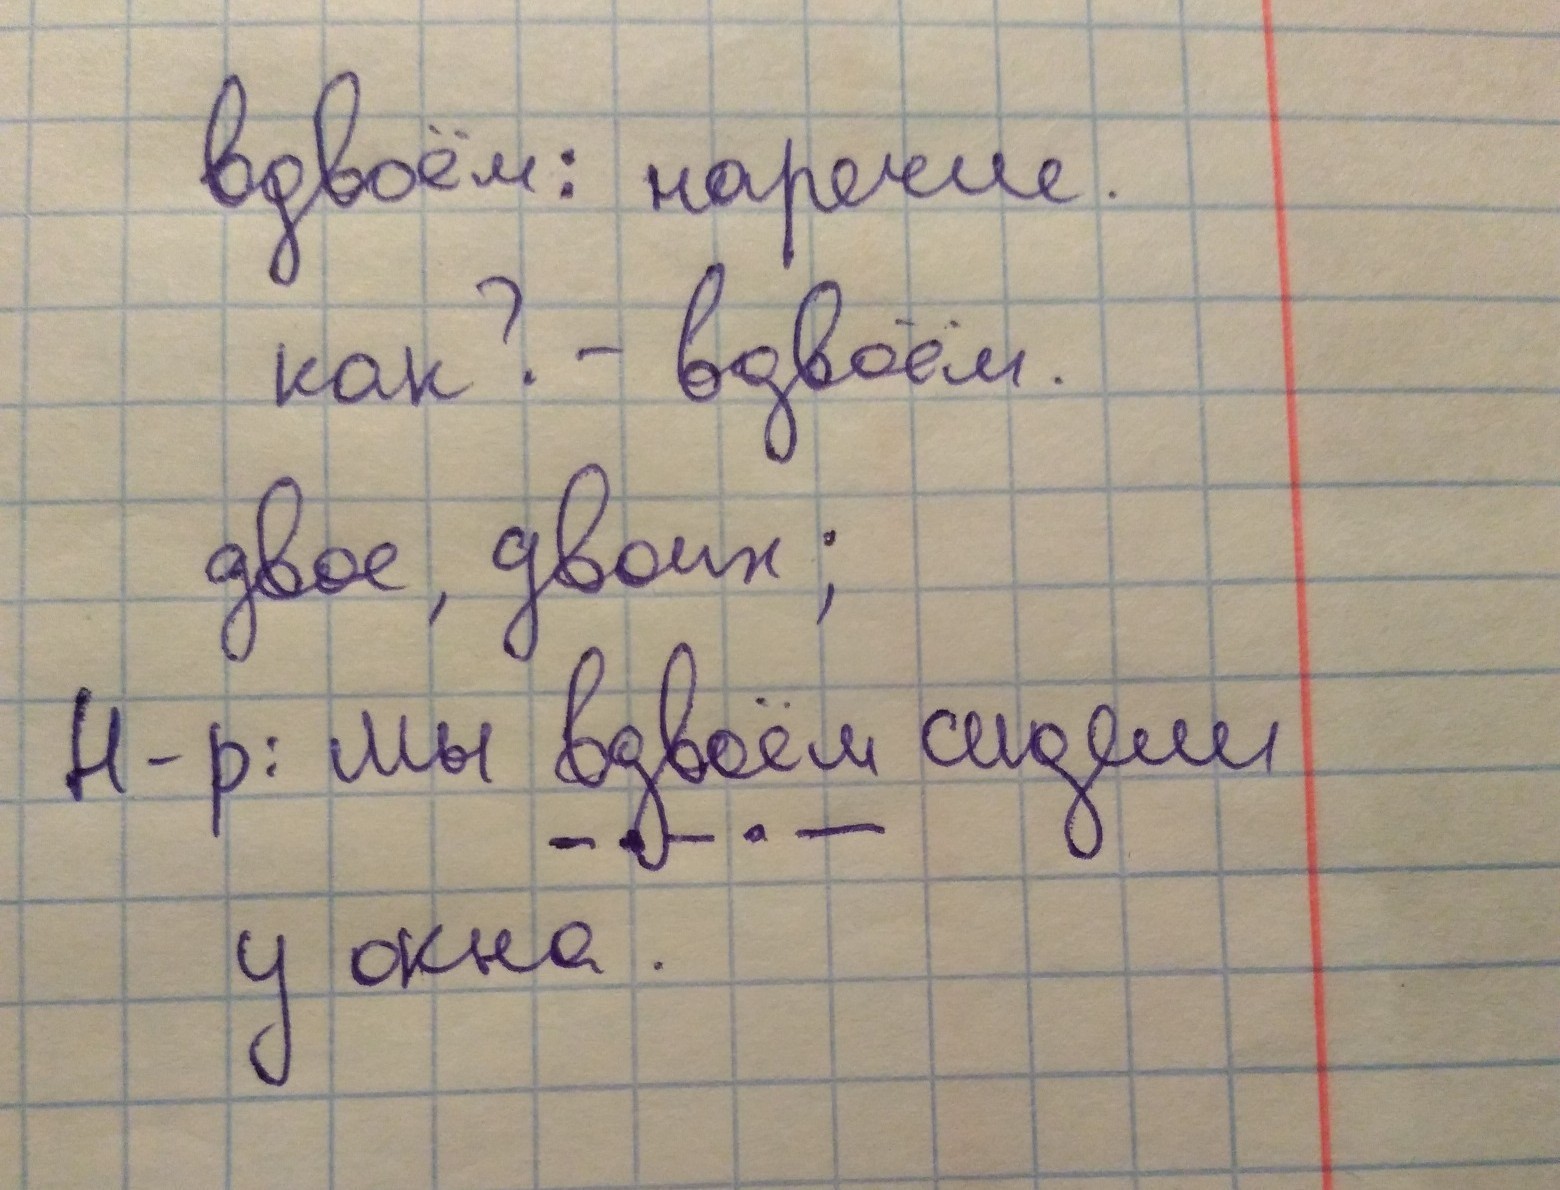 вдвоём: наречие.
как? - вдвоём.
двое, двоих;
Н-р: мы вдвоём сидели
у окна.